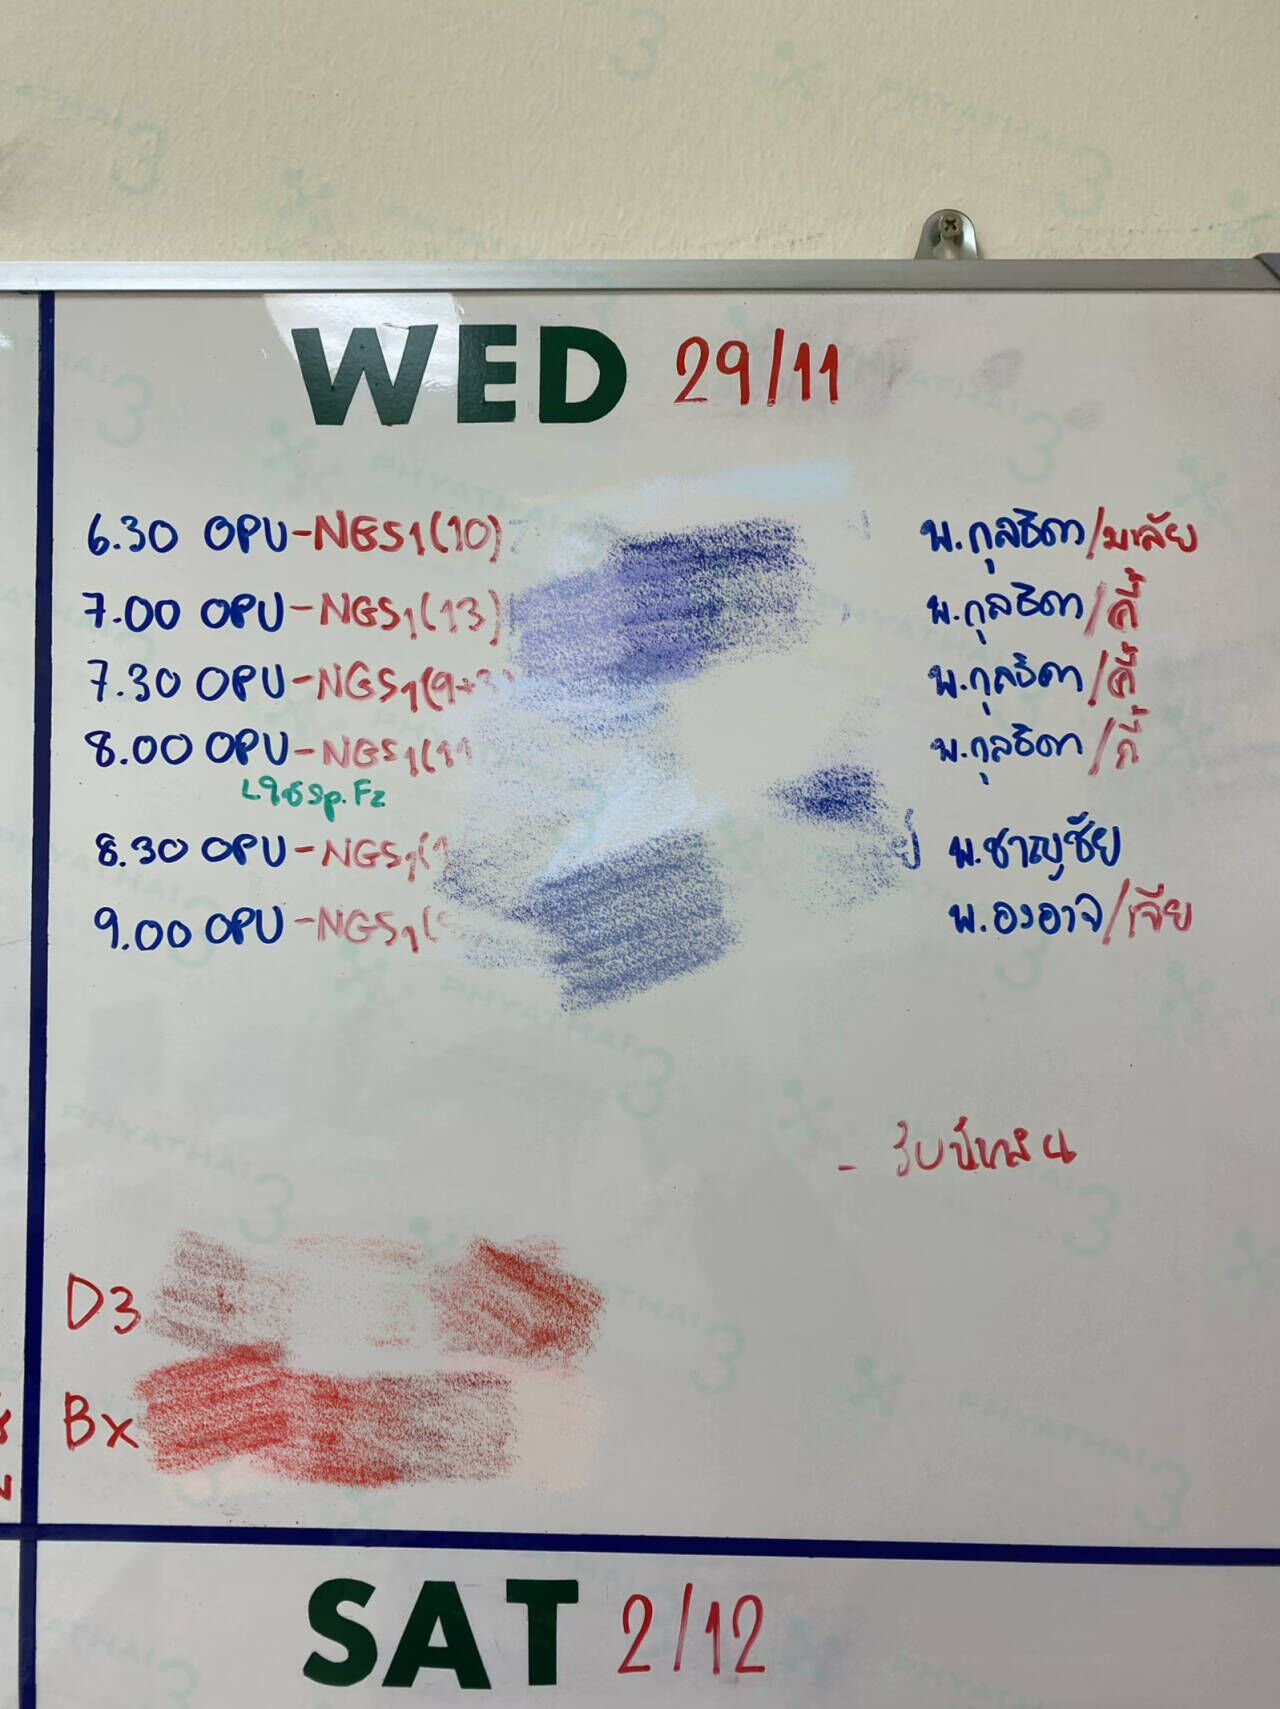 WED 29/11
6.30 OPU-NGS1(10) พ.กุลธิดา/มาลัย
7.00 OPU-NGS1(13) พ.กุลธิดา/กี้
7.30 OPU-NGS1(9+3) พ.กุลธิดา/กี้
8.00 OPU-NGS1(11 พ.กุลธิดา/กี้
Sp.Fz
8.30 OPU-NGS1( พ.ชาญชัย
9.00 OPU-NGS1( พ.องอาจ/เจี๊ย
D3
Bx
SAT 2/12